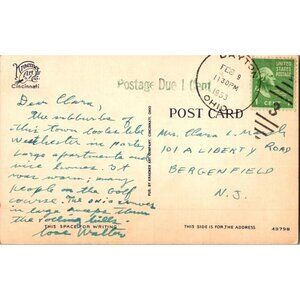 Kraemer Art Co.
Cincinnati
Postage Due 1 Cent
DAYTON
FEB 9
11 30 PM
1953
OHIO
UNITED STATES
POSTAGE
POST CARD
Dear Clara:
The suburbs of
this town looks like
Westchester
large apartments and
nice homes. It
was warm; many
people on the Golf
course. The Ohio
in large sweeps thru
the rolling hills.
Love Walter
THIS SPACE FOR WRITING
Mrs. Clara L.
101 A LIBERTY ROAD
BERGENFIELD
N.J.
THIS SIDE IS FOR THE ADDRESS
43798